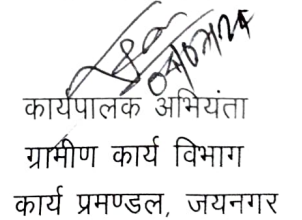 04/07/24
कार्यपालक अभियंता
ग्रामीण कार्य विभाग
कार्य प्रमण्डल, जयनगर